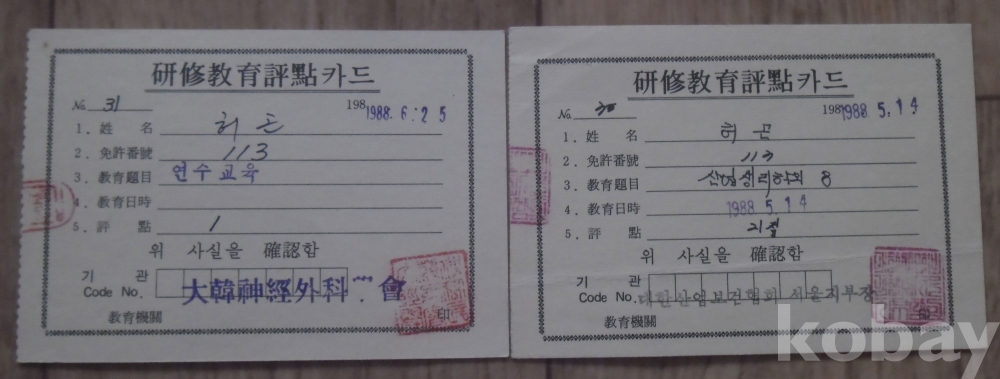 研修教育評點카드
№ 31
198 1988. 6. 25
1. 姓 名 허곤
2. 免許番號 113
3. 教育題目 연수교육
4. 教育日時
5. 評 點 1
위 사실을 確認함
기 관
Code No.
大韓神經外科 會
教育機關 印
研修教育評點카드
№ 30
198 1988 5. 14
1. 姓 名 허곤
2. 免許番號 113
3. 教育題目
4. 教育日時 1988 5. 14
5. 評 點
위 사실을 確認함
기 관
Code No. 대한산업보건협회 서울지부장
教育機關 印
kobay